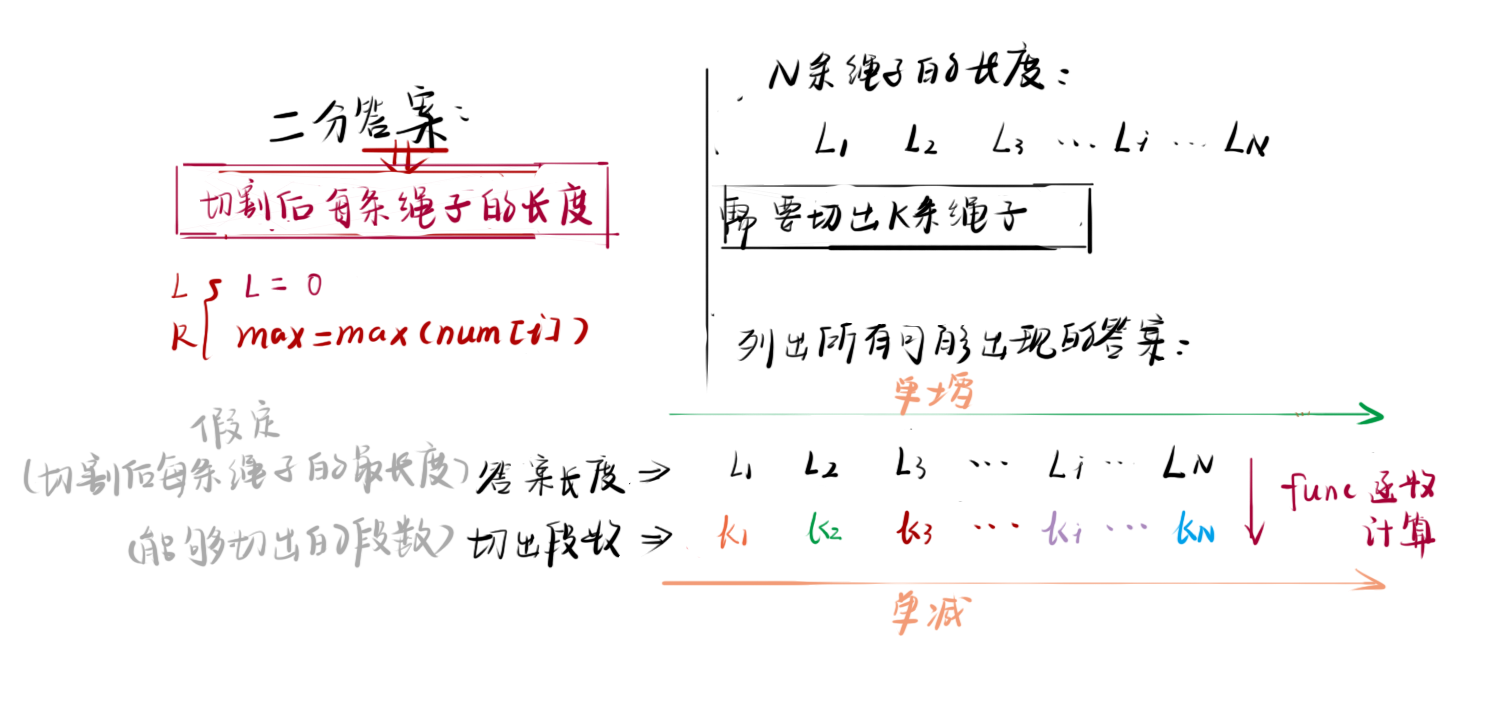 二分答案:
切割后每条绳子的长度
L L = 0
R max=max(num[i])
N条绳子的长度:
L1 L2 L3 ... Li ... LN
需要切出K条绳子
列出所有可能出现的答案:
单增
假定
(切割后每条绳子的最长度) 答案长度 ⇒ L1 L2 L3 ... Li ... LN
(能够切出的段数) 切出段数 ⇒ k1 k2 k3 ... ki ... kN
func 函数
计算
单减